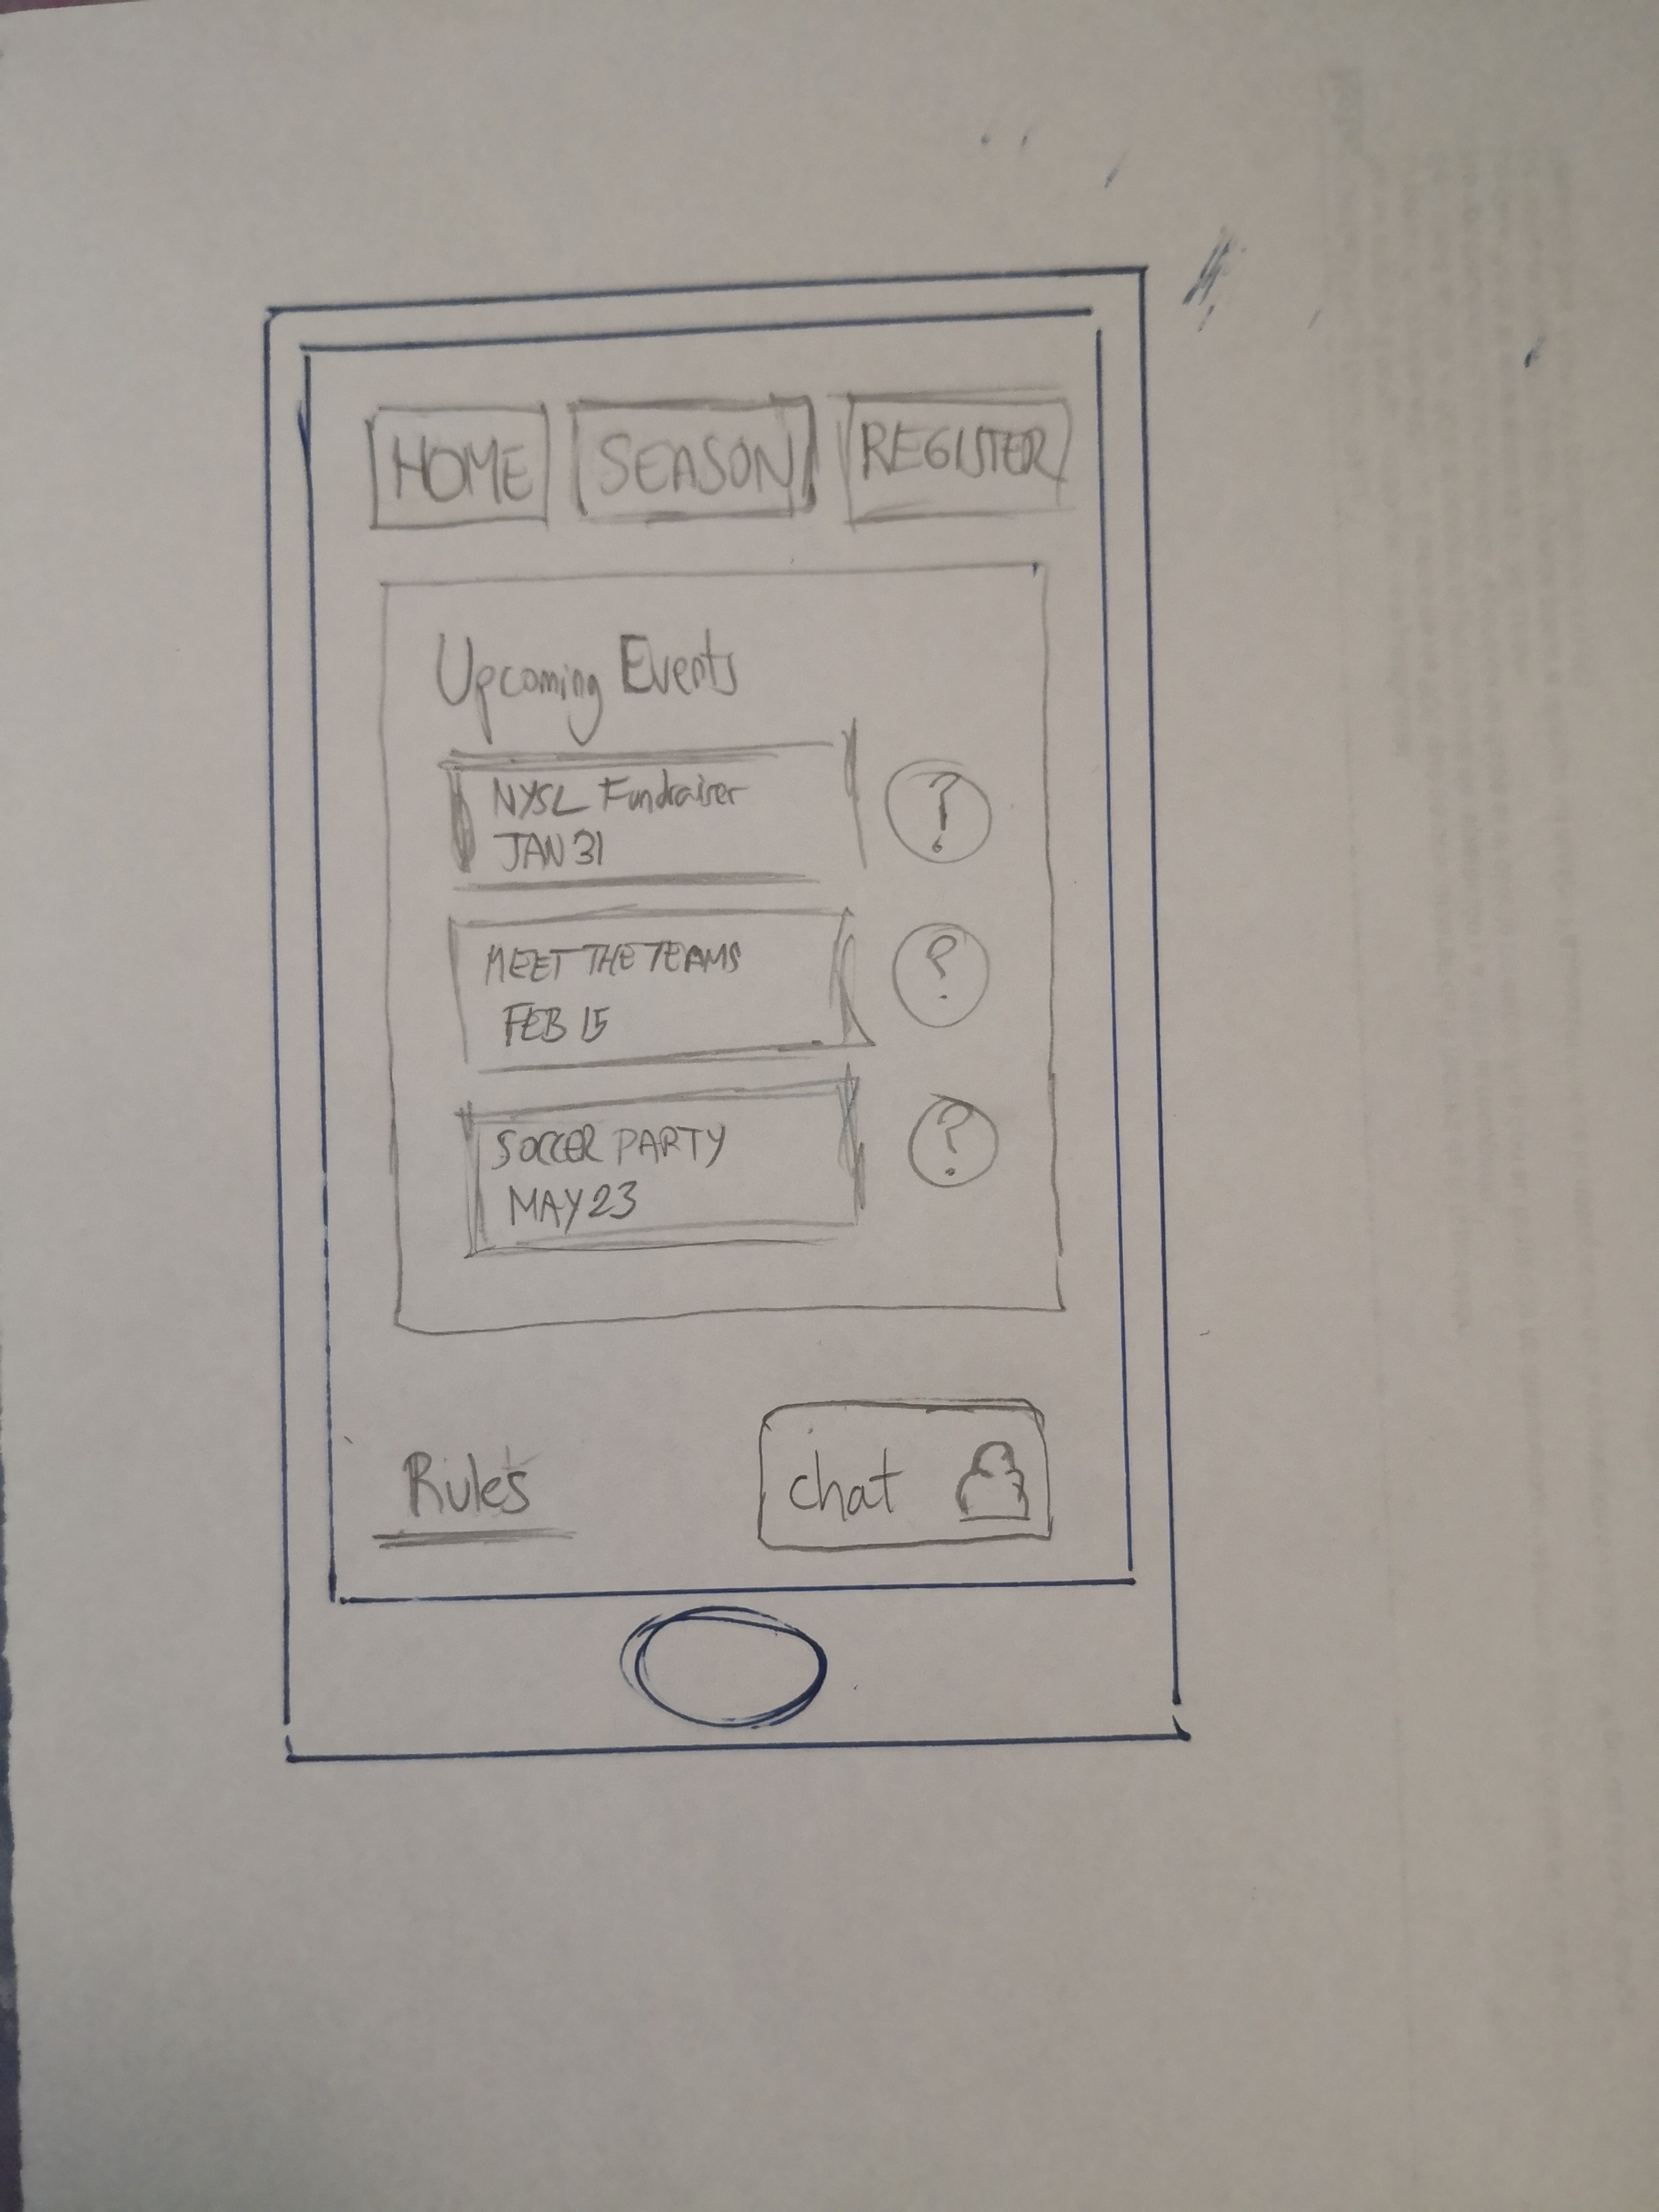 HOME SEASON REGISTER
Upcoming Events
NYSL Fundraiser
JAN 31
?
MEET THE TEAMS
FEB 15
?
SOCCER PARTY
MAY 23
?
Rules
chat